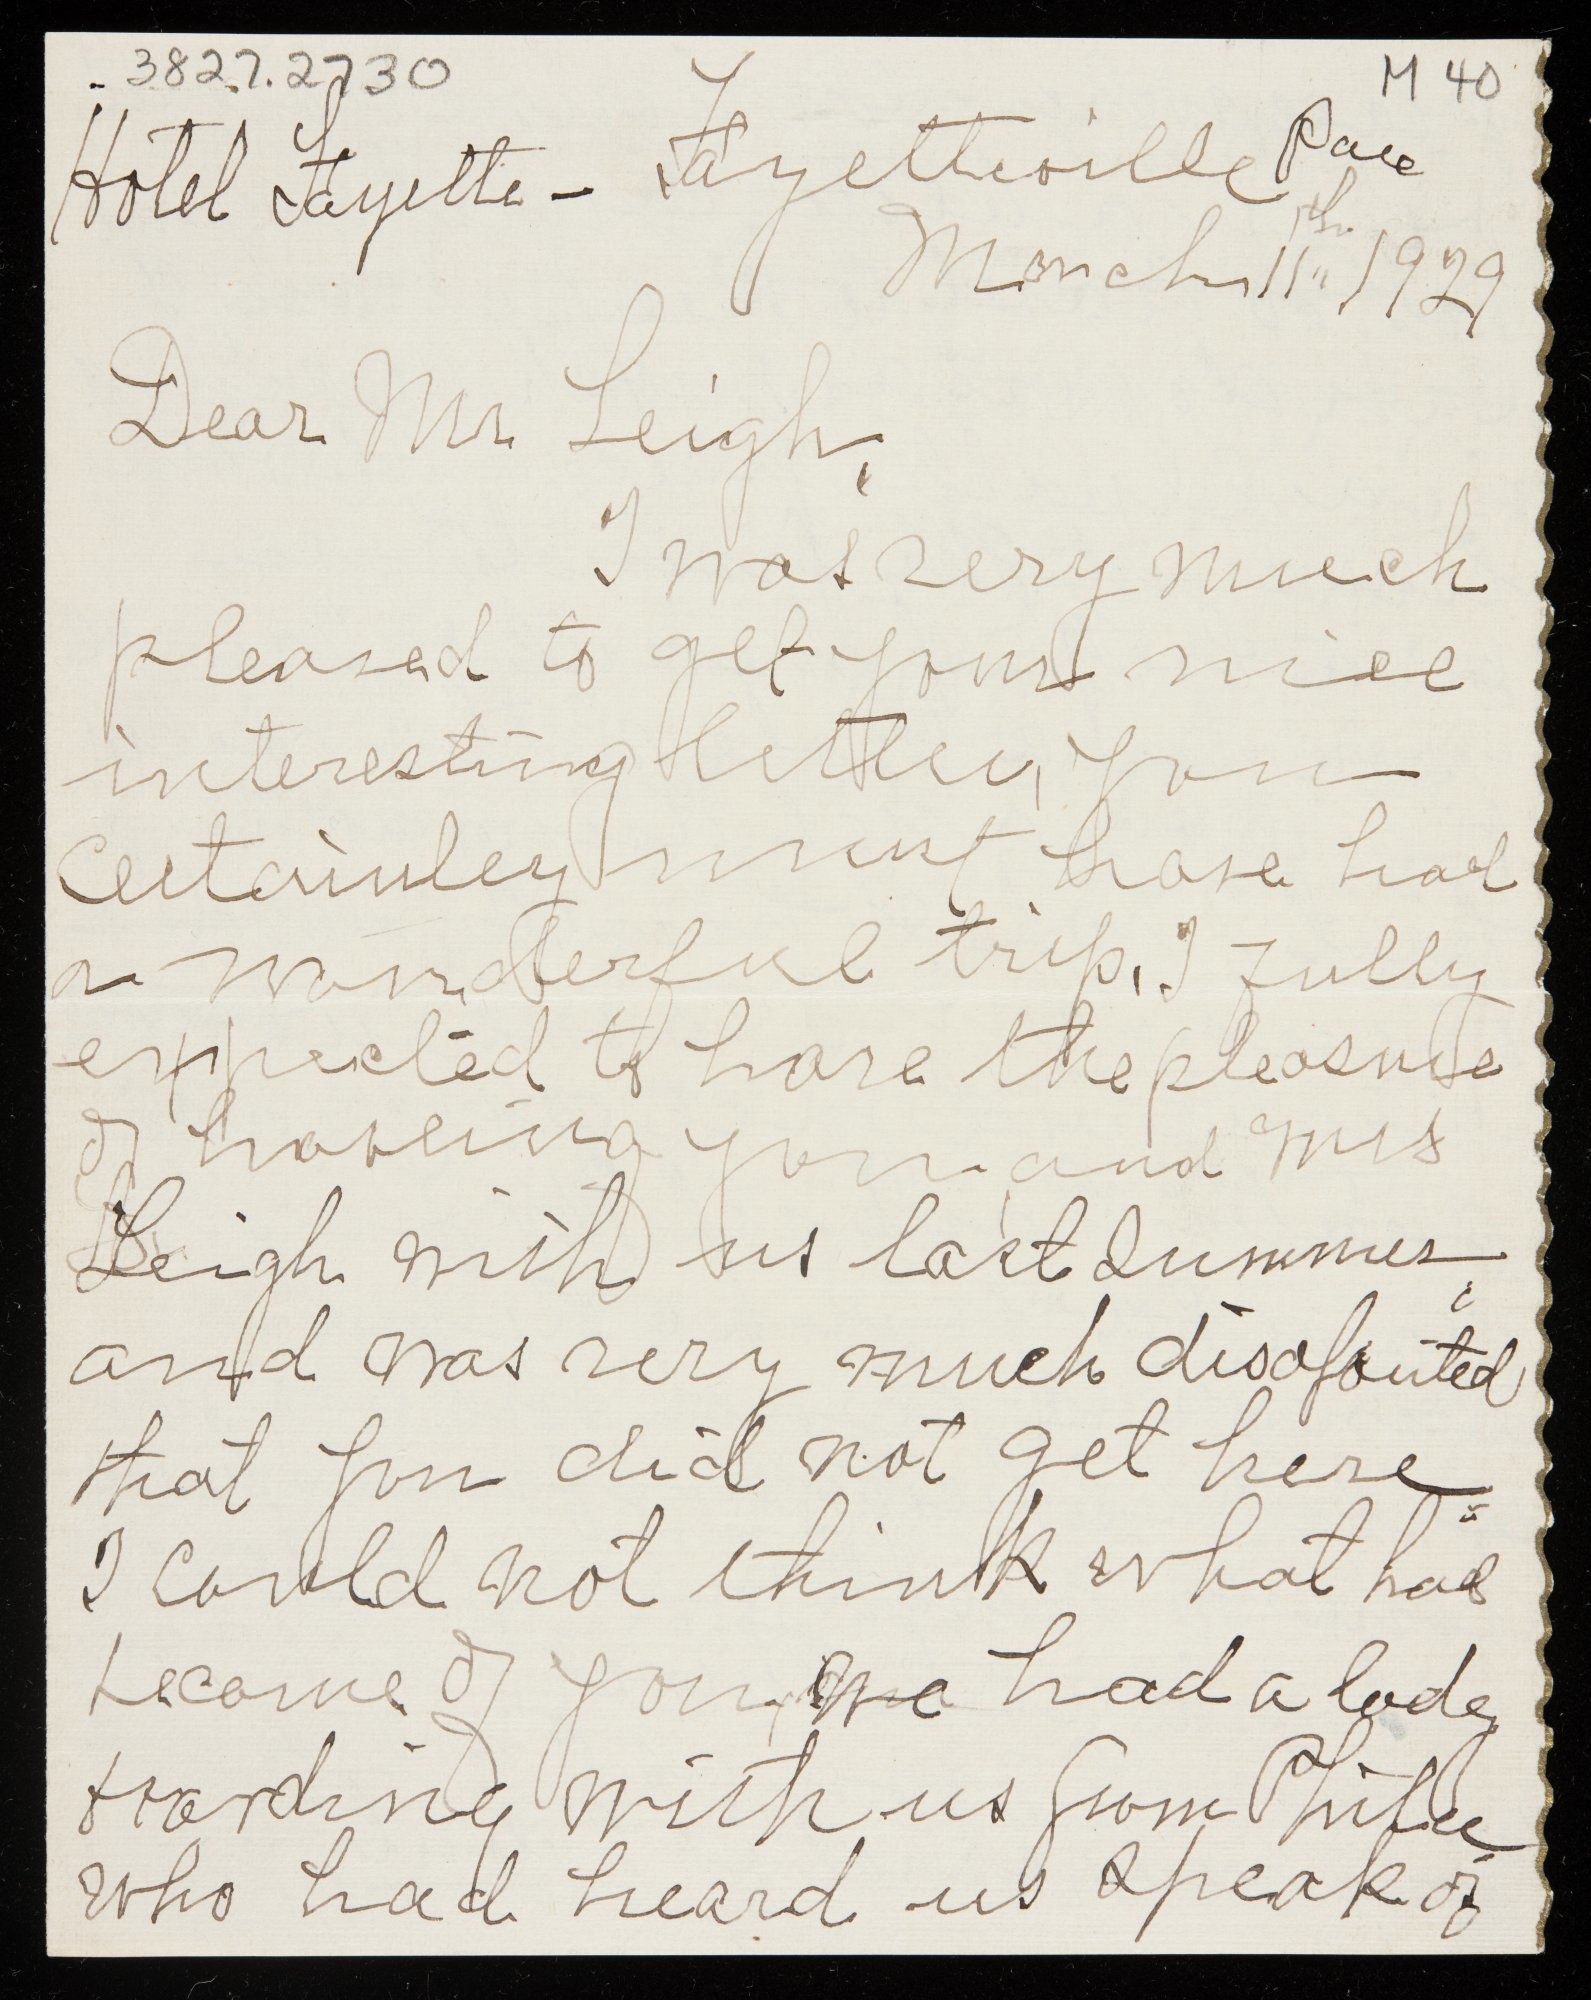 3827.2730
M 40
Hotel Fayette - Fayetteville Pace
March 11th 1929
Dear Mr Leigh,
I was very much
pleased to get your nice
interesting letter, you
certainley must have had
a wonderful trip, I fully
expected to have the pleasure
of haveing you and Mrs
Leigh with us last Summer,
and was very much
that you did not get here
I could not think what had
become of you, we had a lady
boarding with us from
who had heard us speak of